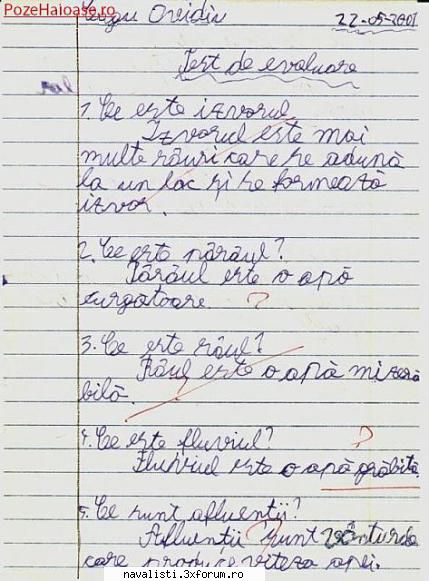 PozeHaioase.ro
Ovidiu 22-05-2001
Test de evaluare
1. Ce este izvorul
Izvorul este mai
multe râuri care se adună
la un loc și se formează
izvor.
2. Ce este părăul?
Părăul este o apă
curgatoare. ?
3. Ce este râul?
Râul este o apă mizera
bilă.
4. Ce este fluviul? ?
Fluviul este o apă grăbită.
5. Ce sunt afluenții?
Afluenții ? sunt
care produce viteza apei.
navalisti.3xforum.ro